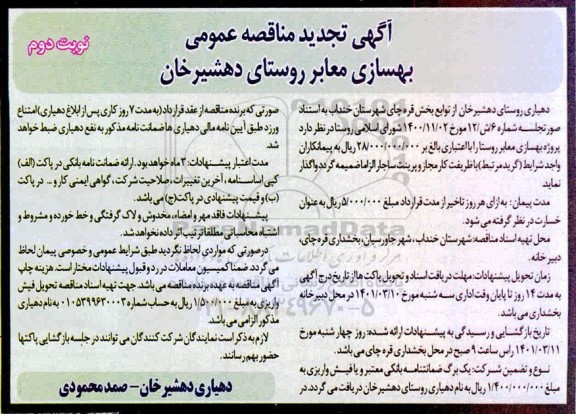 آگهی تجدید مناقصه عمومی
بهسازی معابر روستای دهشیرخان
نوبت دوم
دهیاری روستای دهشیرخان از توابع بخش قره چای شهرستان خنداب به استناد
صورتجلسه شماره ۶/ش/۱۲ مورخ ۱۴۰۰/۱۱/۰۲ شورای اسلامی روستا در نظر دارد
پروژه بهسازی معابر روستا را با اعتباری بالغ بر ۲۸/۰۰۰/۰۰۰/۰۰۰ ریال به پیمانکاران
واجد شرایط (گرید مرتبط) با ظرفیت کار مجاز و پرینت ساجار الزاما ضمیمه گردد واگذار
نماید
مدت پیمان: به ازای هر روز تاخیر از مدت قرارداد مبلغ ۵/۰۰۰/۰۰۰ ریال به عنوان
خسارت در نظر گرفته می شود.
محل تهیه اسناد مناقصه: شهرستان خنداب، شهر جاورسیان، بخشداری قره چای،
دبیرخانه.
زمان تحویل پیشنهادات: مهلت دریافت اسناد و تحویل پاکت ها از تاریخ درج آگهی
به مدت ۱۴ روز تا پایان وقت اداری سه شنبه مورخ ۱۴۰۱/۰۳/۱۰ در محل دبیرخانه
بخشداری می باشد
تاریخ بازگشایی و رسیدگی به پیشنهادات ارائه شده: روز چهارشنبه مورخ
۱۴۰۱/۰۳/۱۱ راس ساعت ۹ صبح در محل بخشداری قره چای می باشد.
نوع و تضمین شرکت: یک برگ ضمانتنامه بانکی معتبر و یا فیش واریزی به
مبلغ ۱/۴۰۰/۰۰۰/۰۰۰ ریال به نام دهیاری روستای دهشیرخان دریافت می گردد. در
صورتی که برنده مناقصه از عقد قرارداد (به مدت ۷ روز کاری پس از ابلاغ دهیاری) امتناع
ورزد طبق آیین نامه مالی دهیاری ها ضمانت نامه مذکور به نفع دهیاری ضبط خواهد
شد
مدت اعتبار پیشنهادات: ۳ ماه خواهد بود. ارائه ضمانت نامه بانکی در پاکت (الف)
کپی اساسنامه، آخرین تغییرات، صلاحیت شرکت، گواهی ایمنی کار و... در پاکت
(ب) و قیمت پیشنهادی در پاکت (ج) می باشد.
پیشنهادات فاقد مهر و امضاء، مخدوش و لاک گرفتگی و خط خورده و مشروط و
اشتباه محاسباتی مطلقا ترتیب اثر داده نخواهد شد.
در صورتی که مواردی لحاظ نگردید طبق شرایط عمومی و خصوصی پیمان لحاظ
می گردد ضمنا کمیسیون معاملات در رد و قبول پیشنهادات مختار است. هزینه چاپ
آگهی مناقصه به عهده برنده مناقصه می باشد. جهت تهیه اسناد مناقصه تحویل فیش
واریزی به مبلغ ۱/۵۰۰/۰۰۰ ریال به حساب شماره ۰۱۰۵۳۹۹۶۳۰۰۰۳ به نام دهیاری
مذکور الزامی می باشد.
لازم به ذکر است نمایندگان شرکت کنندگان می توانند در جلسه بازگشایی پاکتها
حضور بهم رسانند.
دهیاری دهشیرخان - صمد محمودی